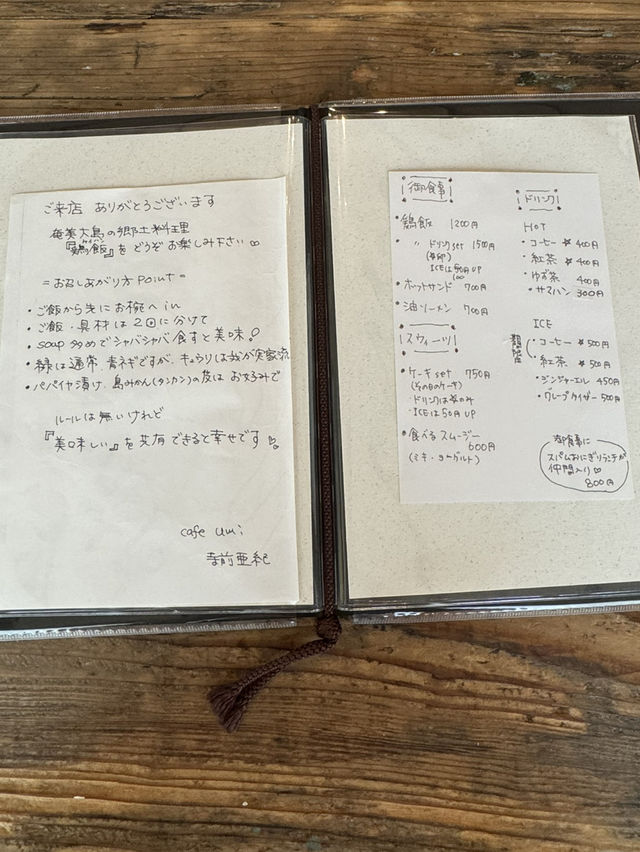 ご来店 ありがとうございます
奄美大島の郷土料理
『鶏飯』をどうぞお楽しみ下さい♡
=お召しあがり方 Point=
・ご飯から先にお椀へ in
・ご飯・具材は2回に分けて
・soap多めでシャバシャバ食すと美味!
・緑は通常、青ネギですが、キュウリは我が実家流
・パパイヤ漬け、島みかん(タンカン)の皮はお好みで
ルールは無いけれど
『美味しい』を共有できると幸せです♡
cafe umi
寺前亜紀
御食事
・鶏飯 1200円
・〃 ドリンクset 1500円
ICEは UP
・ホットサンド 700円
・油ソーメン 700円
スウィーツ
・ケーキset 750円
(その日のケーキ)
・ドリンクは☆のみ
・ICEは50円UP
・食べるスムージー
600円
(ミキ・ヨーグルト)
ドリンク
HOT
・コーヒー ☆ 400円
・紅茶 ☆ 400円
・ゆず茶 400円
・サマハン 300円
ICE
・コーヒー ☆ 500円
・紅茶 ☆ 500円
・ジンジャーエール 450円
・グレープタイザー 500円
御食事に
スパムおにぎりランチが
仲間入り♡
800円